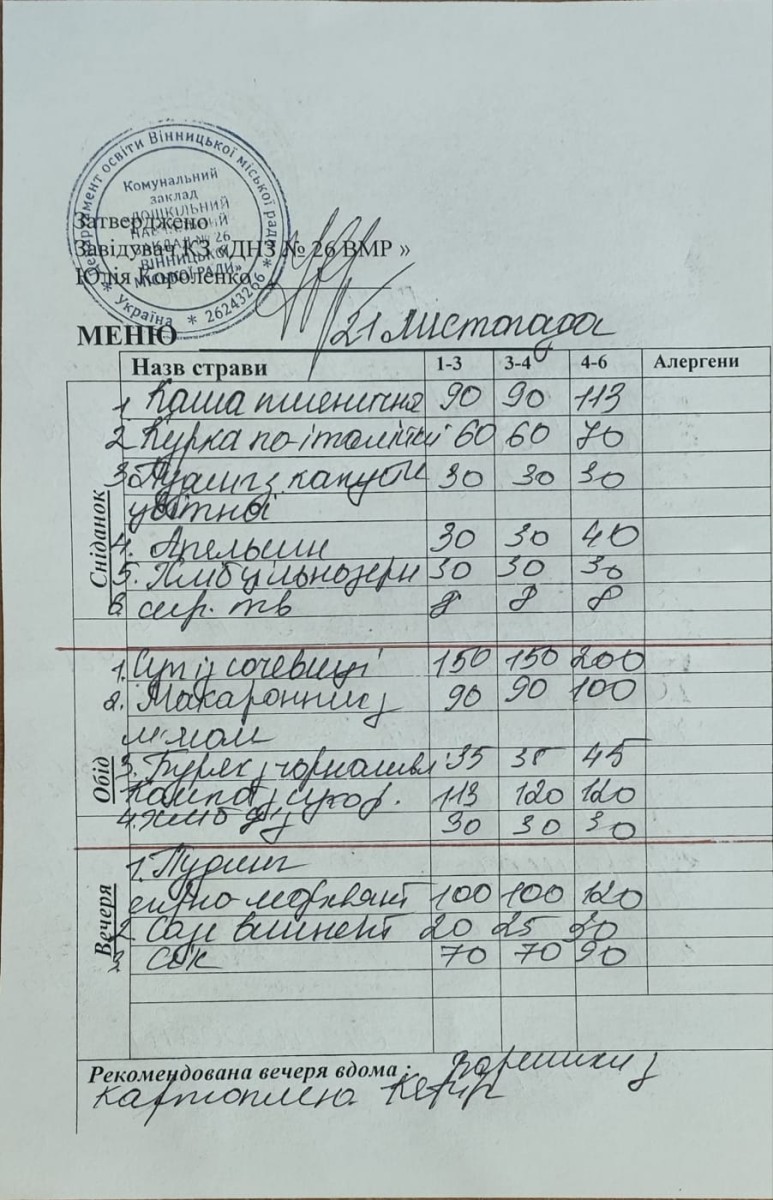 Департамент освіти Вінницької міської ради
* Україна * 26243266 *
Комунальний
заклад
«ДОШКІЛЬНИЙ
НАВЧАЛЬНИЙ
ЗАКЛАД № 26
ВІННИЦЬКОЇ
МІСЬКОЇ РАДИ»
Затверджено
Завідувач КЗ «ДНЗ № 26 ВМР »
Юлія Короленко
МЕНЮ 21 листопада
Назв страви 1-3 3-4 4-6 Алергени
Сніданок
1 Каша пшенична 90 90 113
2 Курка по-італійськи 60 60 70
3. Пудинг з капусти 30 30 30
цвітної
4. Апельсин 30 30 40
5. Хліб цільнозерн 30 30 30
6. сир. тв 8 8 8
Обід
1. Суп із сочевиці 150 150 200
2. Макаронник з 90 90 100
м'ясом
3. Буряк з чорнослив 35 35 45
Компот з сухоф. 113 120 120
4. хліб 30 30 30
Вечеря
1. Пудинг
сирно-морквяний 100 100 120
2 Соус 20 25 30
3 Сік 70 70 90
Рекомендована вечеря вдома : Вареники з
картоплею Кефір